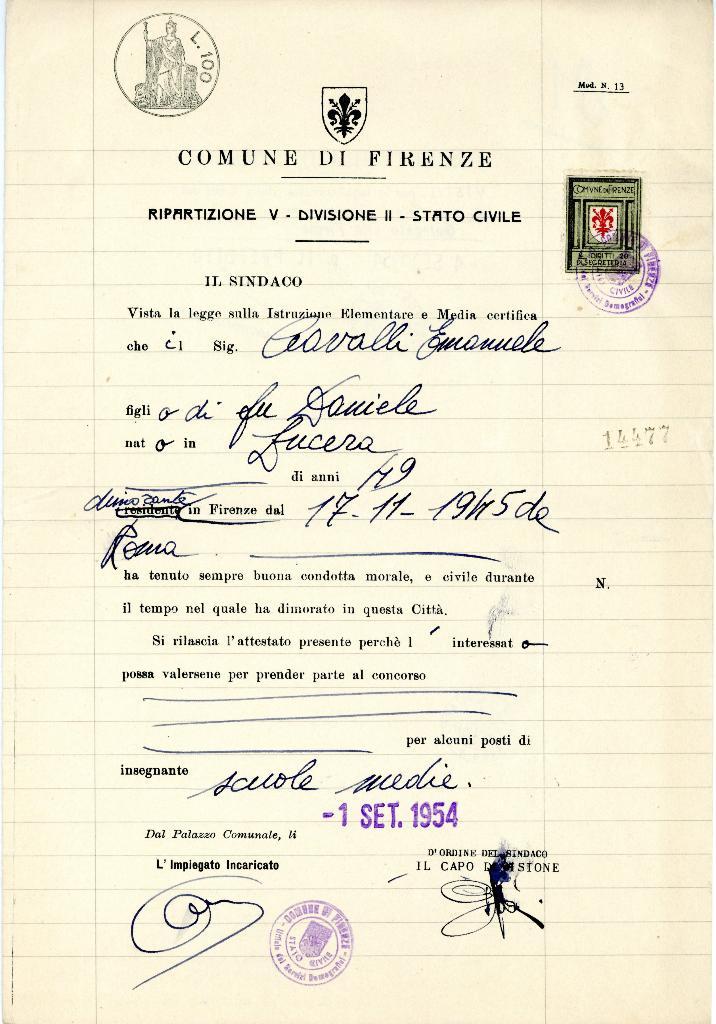 L. 100
Mod. N. 13
COMUNE DI FIRENZE
COMVNE DI FIRENZE
DIRITTI 20
DI SEGRETERIA
RIPARTIZIONE V - DIVISIONE II - STATO CIVILE
IL SINDACO
Vista la legge sulla Istruzione Elementare e Media certifica
che il Sig. Cavalli Emanuele
figlio di fu Daniele
nato in Lucera
14477
di anni 49
dimorante
residente in Firenze dal 17-11-1945 da
Roma
ha tenuto sempre buona condotta morale, e civile durante
N.
il tempo nel quale ha dimorato in questa Città.
Si rilascia l'attestato presente perchè l' interessato
possa valersene per prender parte al concorso
per alcuni posti di
insegnante scuole medie.
-1 SET. 1954
Dal Palazzo Comunale, li
D'ORDINE DEL SINDACO
L'Impiegato Incaricato
IL CAPO DIVISIONE
COMUNE DI FIRENZE - Ufficio dei Servizi Demografici -
STATO CIVILE